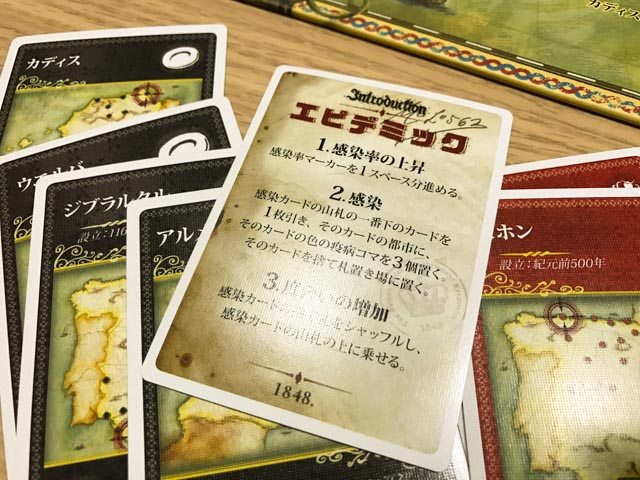 カディス
カディス
ウエルバ
ジブラルタル
設立:116
アル
Introduction
エピデミック
№562
1.感染率の上昇
感染率マーカーを1スペース分進める。
2.感染
感染カードの山札の一番下のカードを
1枚引き、そのカードの都市に、
そのカードの色の疫病コマを3個置く。
そのカードを捨て札置き場に置く。
3. の増加
感染カード シャッフルし、
感染カードの山札の上に乗せる。
1848
1848.
ホン
設立:紀元前500年